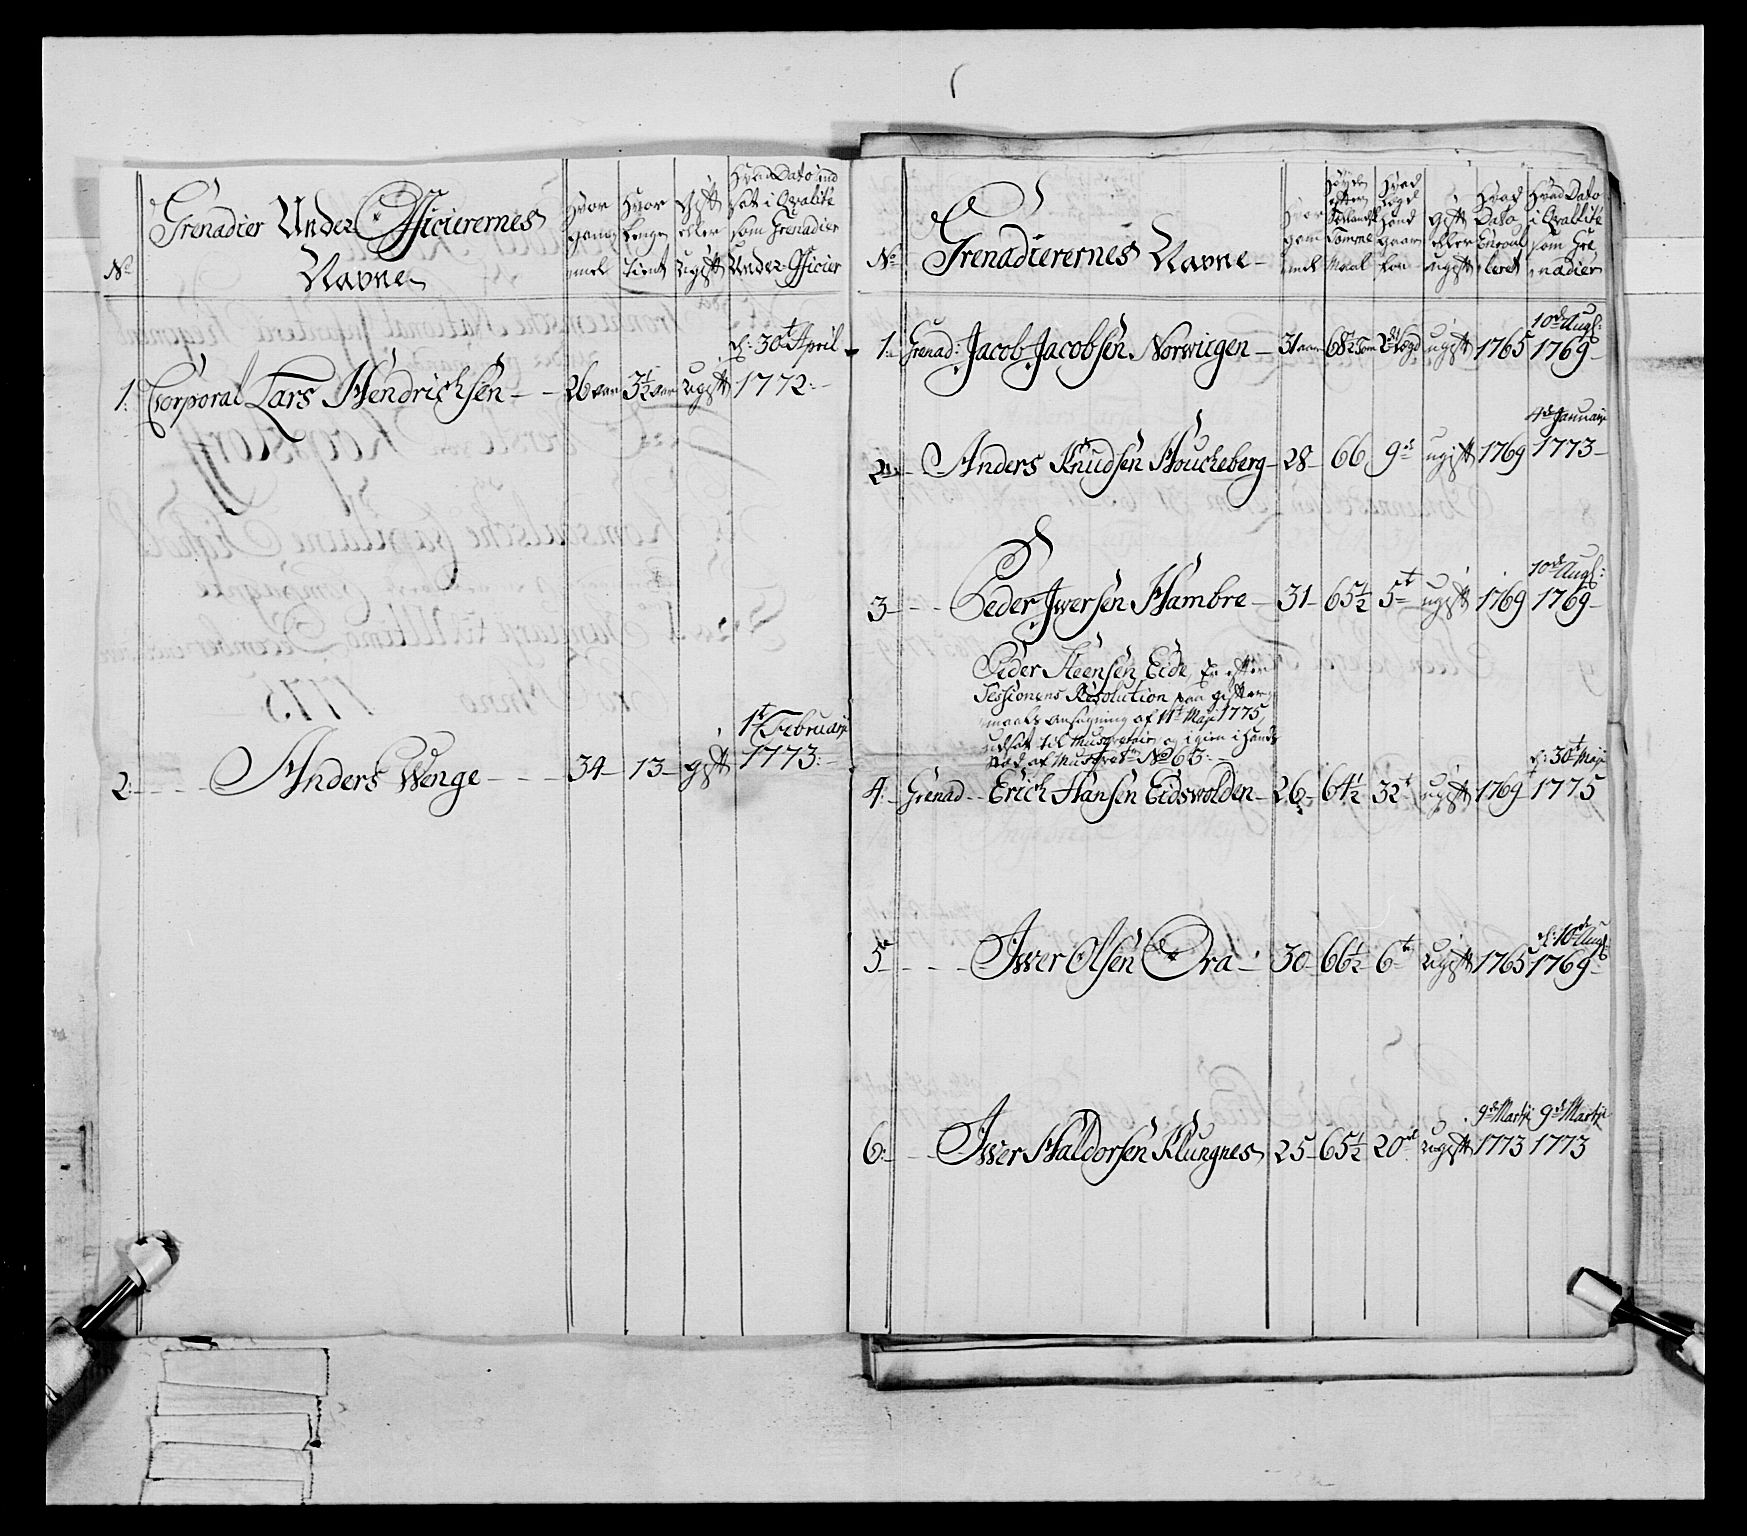 Grenadier Under Officierernes
Navne
No
Hvor gammel
Hvor lenge tient
Gift eller ugift
Hvad Dato ind
sat i Qvalité
som Grenadier
Under Officier
1. Corporal Lars Hendrichsen - - 26 aar 3½ aar ugift d: 30t April 1772.
2. - - - Anders Wenge - - - 34 - 13 - gift 1t Februarii 1773.
No
Grenadierernes Navne
Hvor gammel
Tomme Maal
Hvad Lægd
gift eller ugift
Hvad Dato Enroulleret
Hvad Dato
i Qvalité
som Grenadier
1. Grenad: Jacob Jacobsen Norwiigen - 31 aar 68½ Tom 2de Lægd ugift 1765 10de Augl: 1769
2. - Anders Knudsen Houckeberg - 28 - 66 9de ugift 1769 4de Januarii 1773 -
3 - - - Peder Iwersen Hambre - 31 - 65½ 5t ugift 1769 10de Augl: 1769 -
Peder Steensen Eide, Er efter
Sessionens Resolution paa gifter
maals ansøgning af 11t Maji 1775,
udsat til Musqveteer og igien i hans
sted af Musqvet: No 63. -
4. Grenad - - Erich Hansen Eidswolden - 26 - 64½ 32t ugift 1769 d: 30t Maji 1775
5 - - - Iwer Olsen Ora - 30 - 66½ 6te ugift 1765 d: 10de Augl 1769 -
6. - - Iwer Haldorsen Klungnes 25 - 65½ 20de ugift 9de Martii 1773 9de Martii 1773